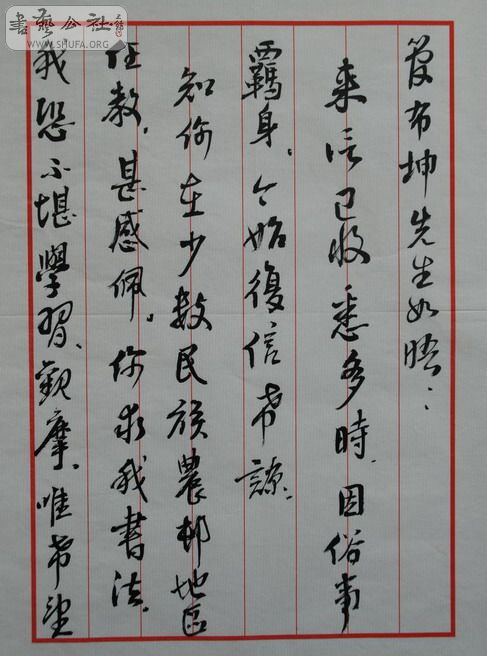 曼布坤先生如晤：
来信已收悉多時、因俗事
羈身、今始復信希諒、
知你在少数民族農邨地區
任教，甚感佩。你求我書法、
我恐不堪學習、觀摩、唯希望
書藝公社
WWW.SHUFA.ORG